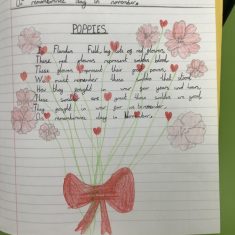 On rememberance day in november.
POPPIES
In Flanders Field, big lots of red flowers,
These red flowers represent soldiers blood
These flowers represent their great powers,
We must remember these soldiers that stood
How they fought in war for years and tears,
These soldiers are great these soldiers are good
They fought in war for us to remember,
On rememberance day in November.